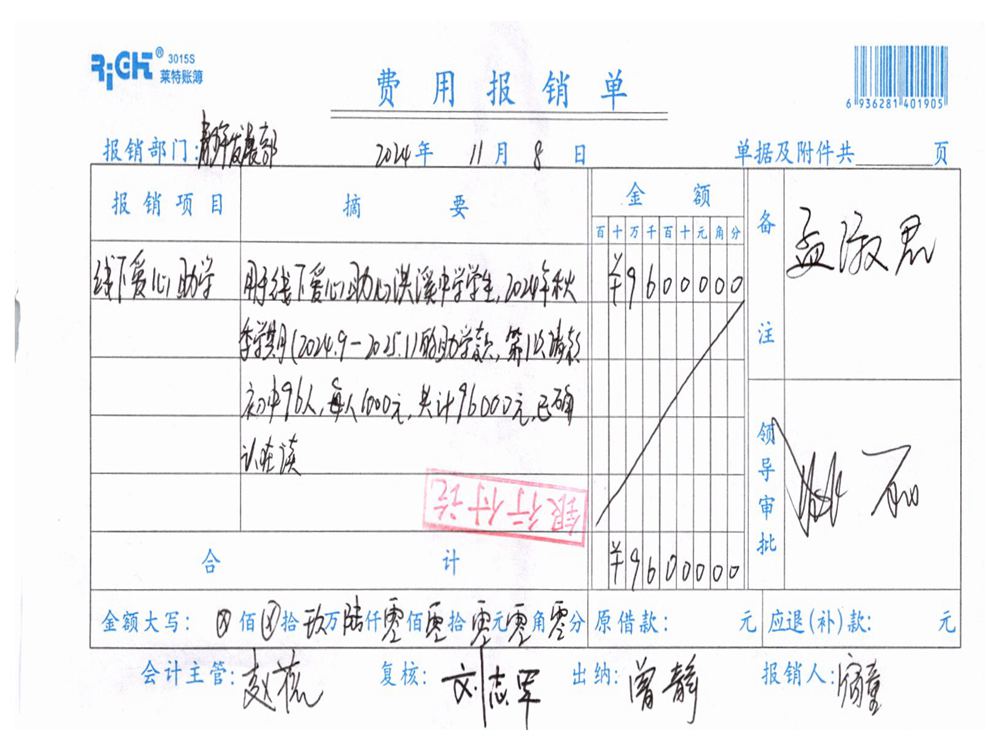 RiGHT® 3015S
莱特账簿
费用报销单
6 936281 401905
报销部门: 发展部 2024年 11月 8日 单据及附件共 页
报销项目 摘要 金额 备注
百十万千百十元角分
线下爱心助学 用于线下爱心助心洪溪中学学生,2024年秋 ¥9600000
季学期(2024.9-2025.1)的助学款,第1次请款
初中96人,每人1000元,共计96000元,已确
认在读
银行付讫
孟淑君
领导审批
合计 ¥9600000
金额大写: ⊗佰⊗拾玖万陆仟零佰零拾零元零角零分 原借款: 元 应退(补)款: 元
会计主管: 赵 复核: 刘志军 出纳: 曾静 报销人: